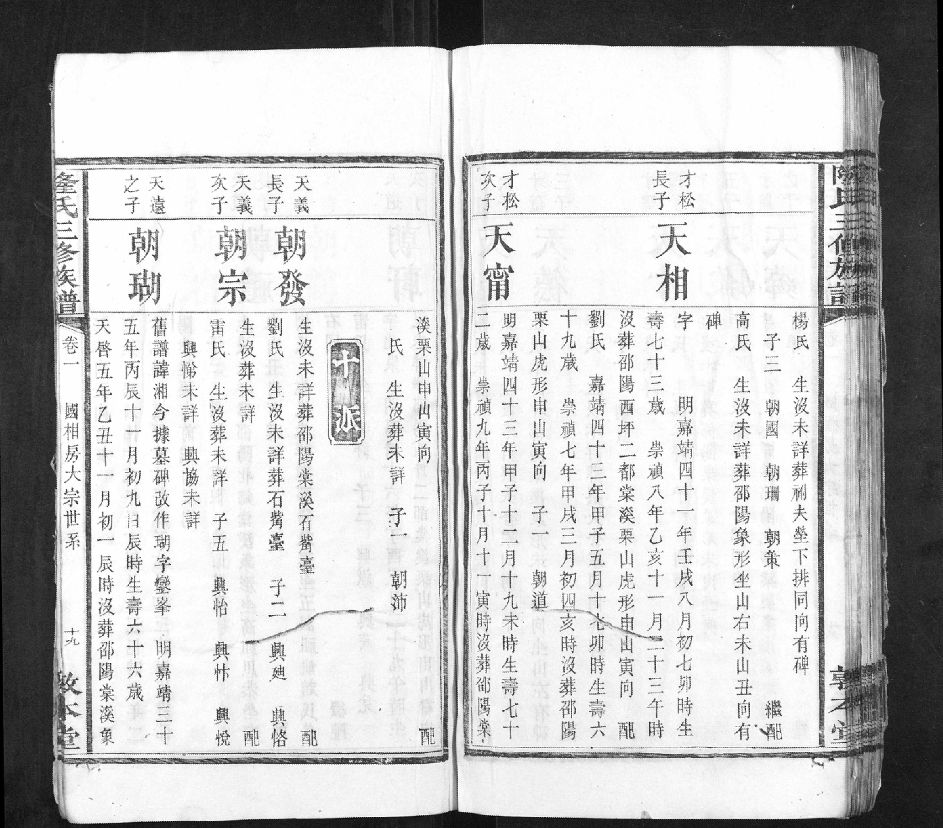 隆氏三修族譜
敦本堂
楊氏 生沒未詳葬祔夫塋下排同向有碑
子三 朝國 朝珊 朝策 繼配
高氏 生沒未詳葬邵陽象形坐山右未山丑向有
碑
才松
長子
天相
字 明嘉靖四十一年壬戌八月初七卯時生
壽七十三歲 崇禎八年乙亥十一月二十三午時
沒葬邵陽西坪二都棠溪栗山虎形申山寅向 配
劉氏 嘉靖四十三年甲子五月十七卯時生壽六
十九歲 崇禎七年甲戌三月初四亥時沒葬邵陽
栗山虎形申山寅向 子一 朝道
才松
次子
天甯
明嘉靖四十三年甲子十二月十九未時生壽七十
二歲 崇禎九年丙子十月十一寅時沒葬邵陽棠
溪栗山申山寅向 配
氏 生沒葬未詳 子一 朝沛
派
天義
長子
朝發
生沒未詳葬邵陽棠溪石觜臺 配
劉氏 生沒未詳葬石觜臺 子二 興廸 興恪
天義
次子
朝宗
生沒葬未詳 配
雷氏 生沒葬未詳 子五 興怡 興怍 興悅
興愉未詳 興協未詳
天遠
之子
朝瑚
舊譜諱湘今據墓碑改作瑚字鑾峯 明嘉靖三十
五年丙辰十一月初九日辰時生壽六十六歲
天啓五年乙丑十一月初一辰時沒葬邵陽棠溪象
隆氏三修族譜
卷一 國相房大宗世系 十九
敦本堂